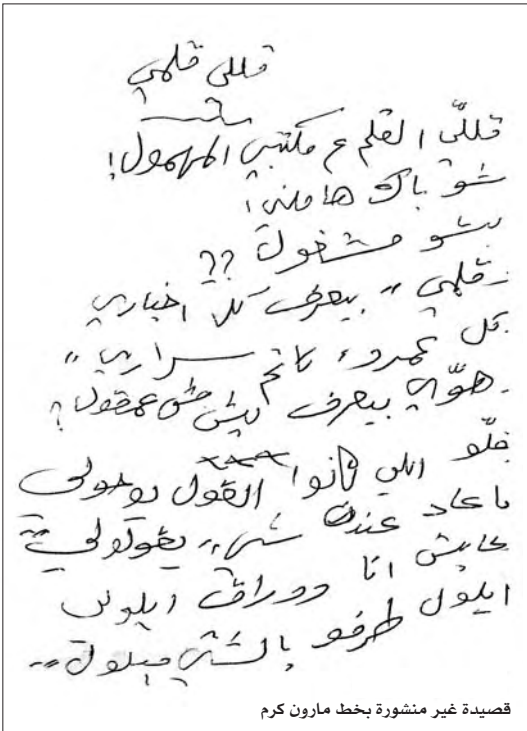 قللي قلمي
قللّي القلم ع مكتبي المهمول!
شو باك هاملني!
بشو مشغول ??
قلمي ،، بيعرف كل اخباري
بكل عمرو، كاتم سراري ،،
هوّي بيعرف ليش مش عمقول ؟
قلّو اللي كانوا القول يوحولي
ما عاد عندن شي ،، يقولولي
عايش انا ووراق ايلولي
ايلول طرفو بالشتي مبلول ،،
قصيدة غير منشورة بخط مارون كرم